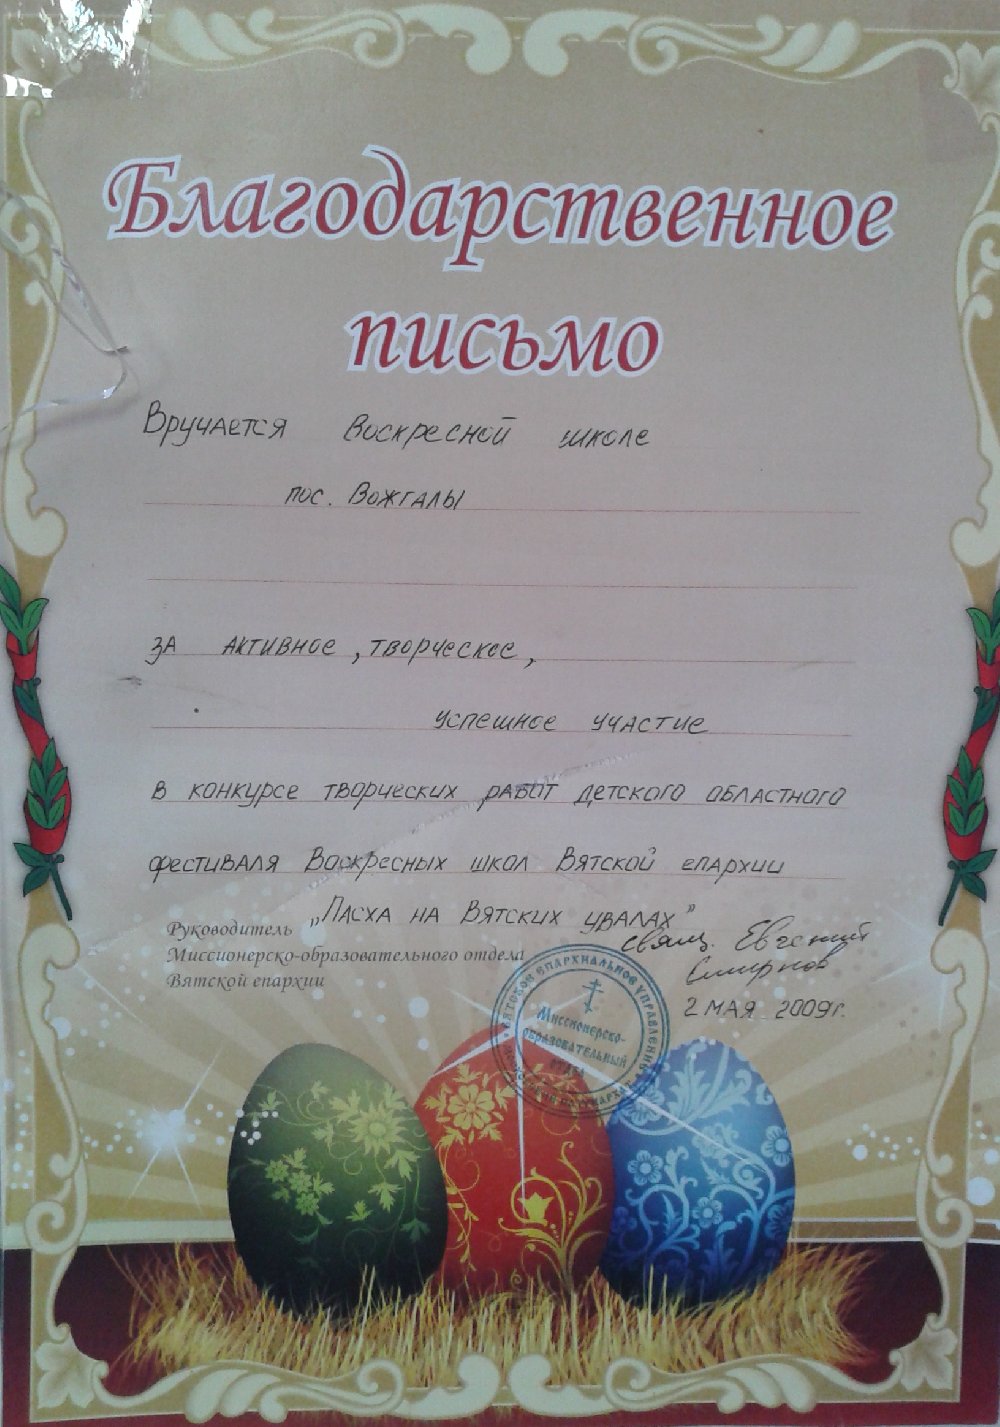 Благодарственное
письмо
Вручается Воскресной школе
пос. Вожгалы
за активное, творческое,
успешное участие
в конкурсе творческих работ детского областного
фестиваля Воскресных школ Вятской епархии
„Пасха на Вятских увалах”
Руководитель
Миссионерско-образовательного отдела
Вятской епархии
свящ. Евгений
Смирнов
2 мая 2009г.
ВЯТСКОЕ ЕПАРХИАЛЬНОЕ УПРАВЛЕНИЕ
Миссионерско-
образовательный
отдел